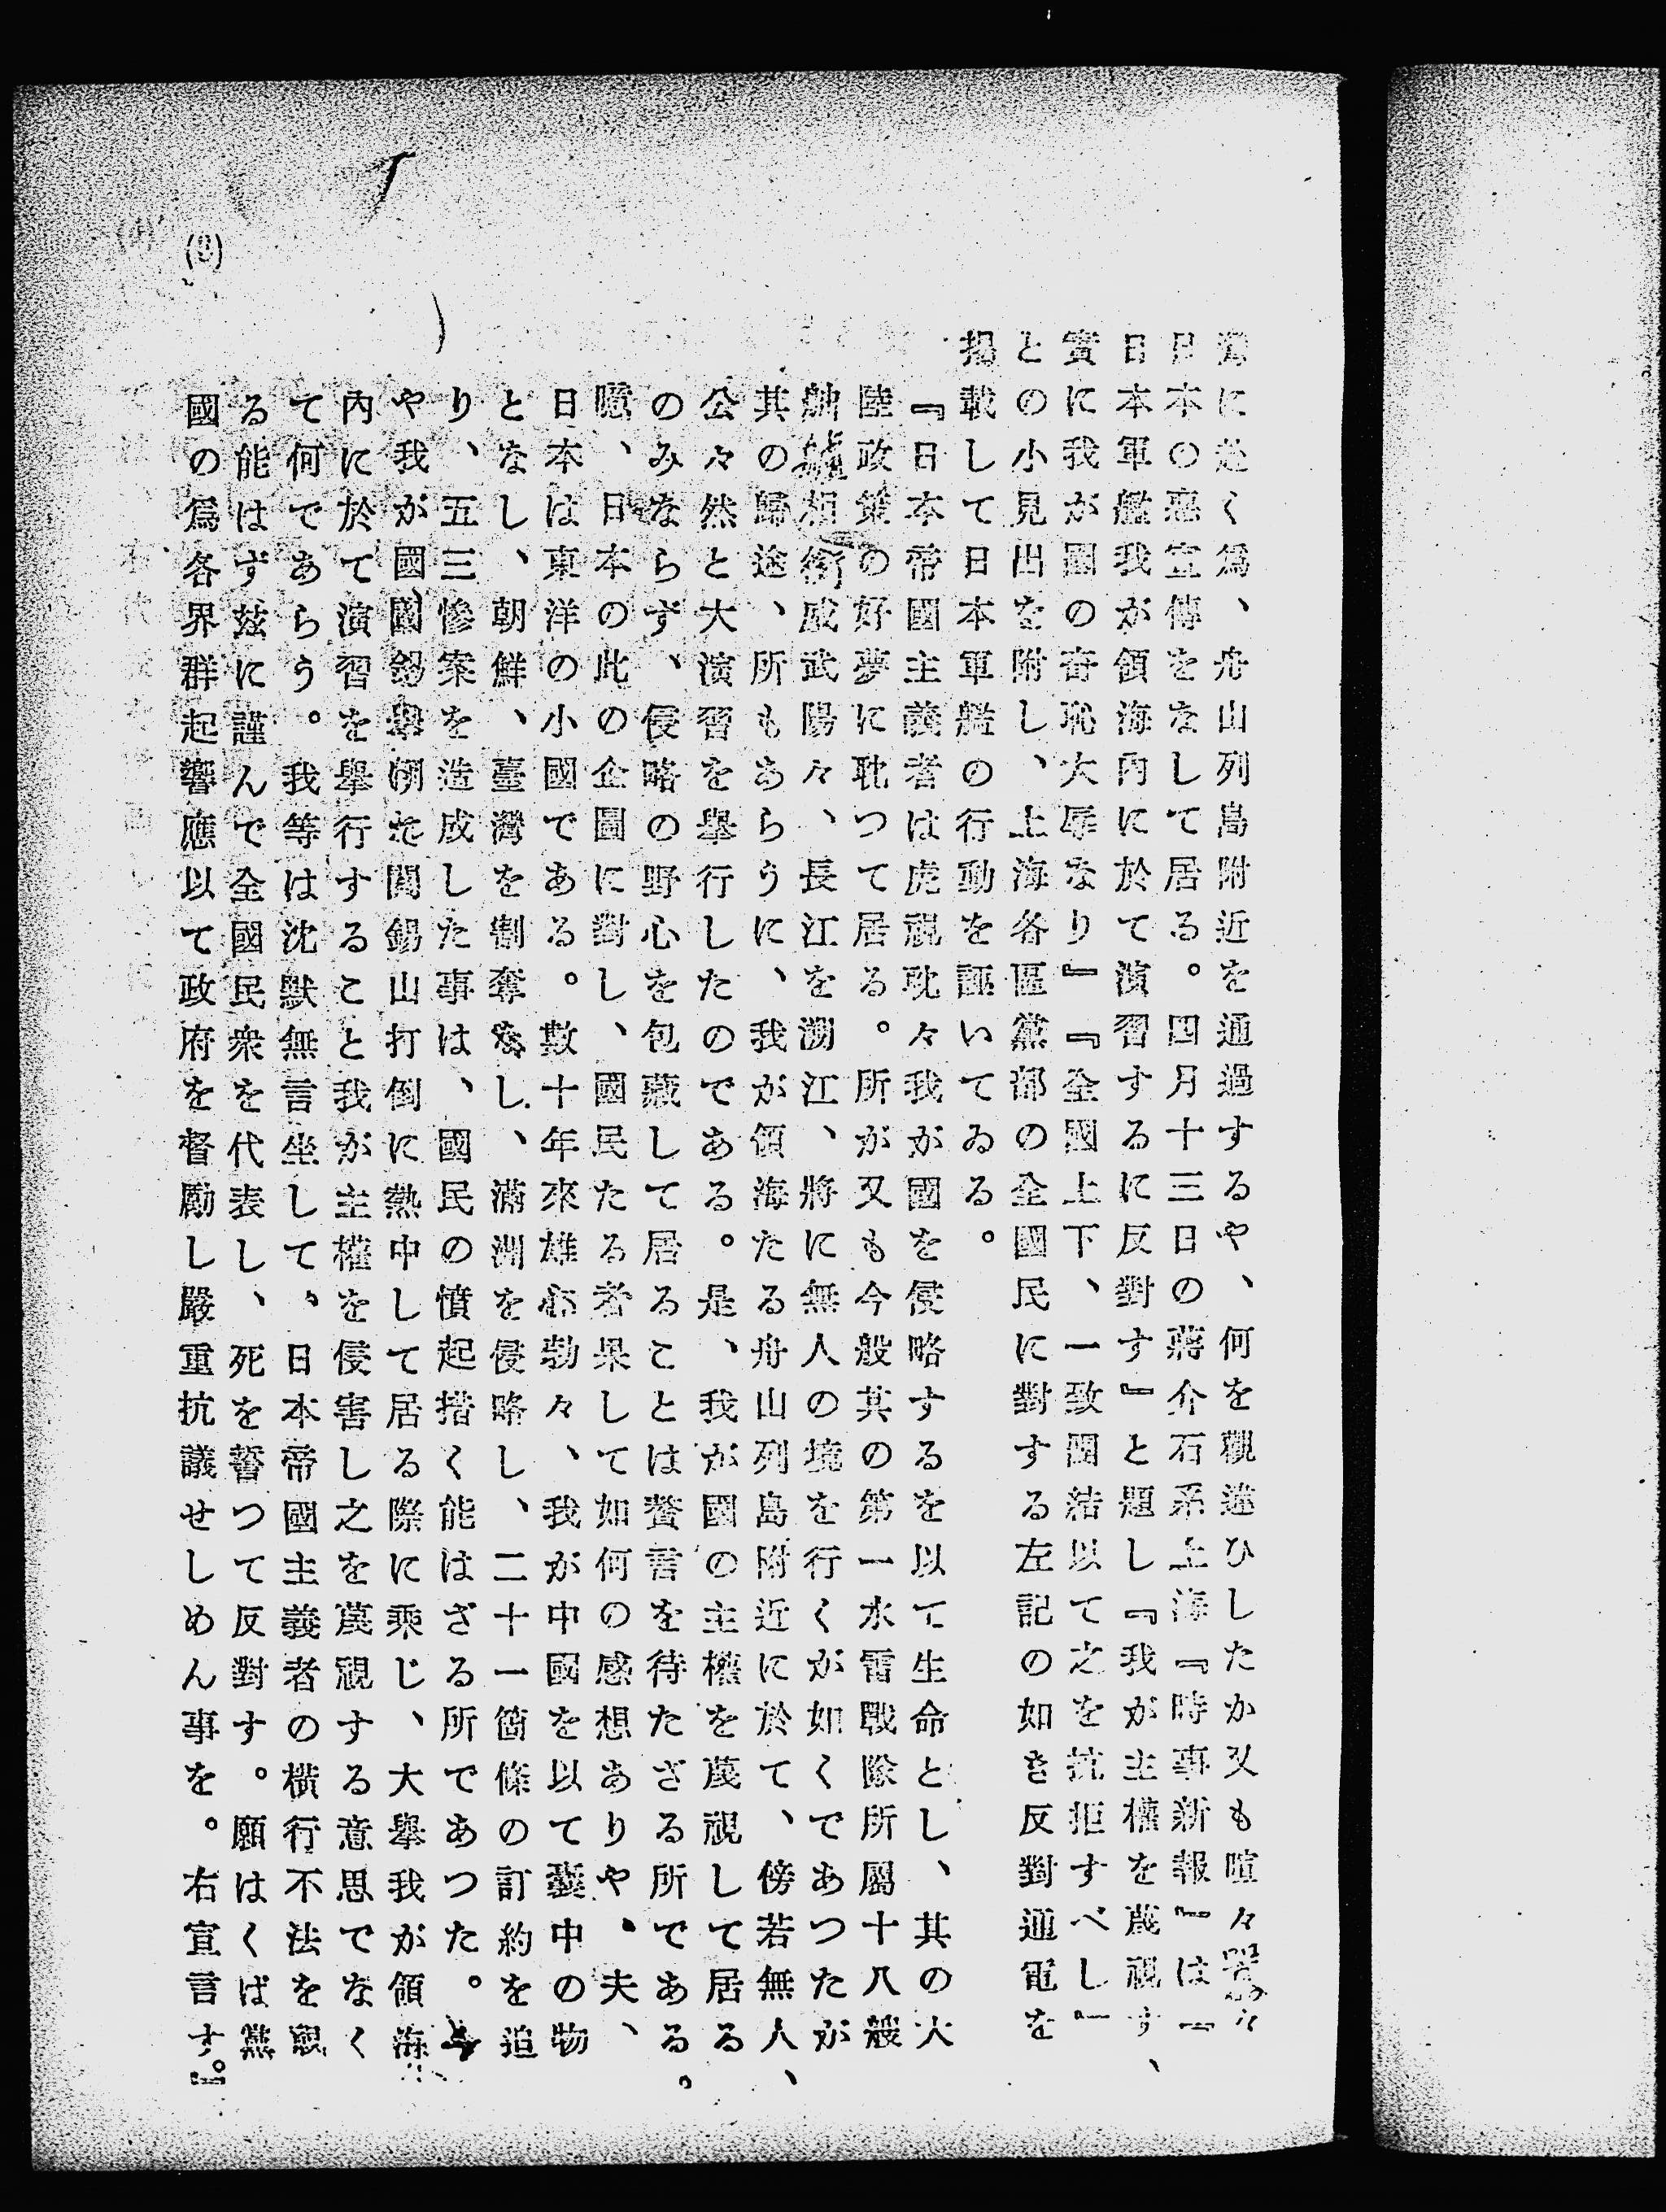 に近く爲、舟山列島附近を通過するや、何を觀違ひしたか又も喧々囂々
日本の惡宣傳をなして居る。四月十三日の蔣介石系上海『時事新報』は『
日本軍艦我が領海内に於て演習するに反對す』と題し『我が主權を蔑視す、
實に我が國の奇恥大辱なり』『全國上下、一致團結以て之を抗拒すべし』
との小見出を附し、上海各區黨部の全國民に對する左記の如き反對通電を
揭載して日本軍艦の行動を誣いてゐる。
『日本帝國主義者は虎視耽々我が國を侵略するを以て生命とし、其の大
陸政策の好夢に耽つて居る。所が又も今般其の第一水雷戰隊所屬十八艘
舳艫相銜成武陽々、長江を溯江、將に無人の境を行くが如くであつたが
其の歸途、所もあらうに、我が領海たる舟山列島附近に於て、傍若無人、
公々然と大演習を擧行したのである。是、我が國の主權を蔑視して居る
のみならず、侵略の野心を包藏して居ることは贅言を待たざる所である。
噫、日本の此の企圖に對し、國民たる者果して如何の感想ありや、夫、
日本は東洋の小國である。數十年來雄心勃々、我が中國を以て囊中の物
となし、朝鮮、臺灣を割奪なし、滿洲を侵略し、二十一箇條の訂約を迫
り、五三慘案を造成した事は、國民の憤起措く能はざる所であつた。今
や我が國國を擧閻錫山打倒に熱中して居る際に乘じ、大擧我が領海
內に於て演習を擧行すること我が主權を侵害し之を蔑視する意思でなく
て何であらう。我等は沈默無言坐して、日本帝國主義者の橫行不法を觀
る能はず玆に謹んで全國民衆を代表し、死を誓つて反對す。願はくば黨
國の爲各界群起響應以て政府を督勵し嚴重抗議せしめん事を。右宣言す。』
(3)